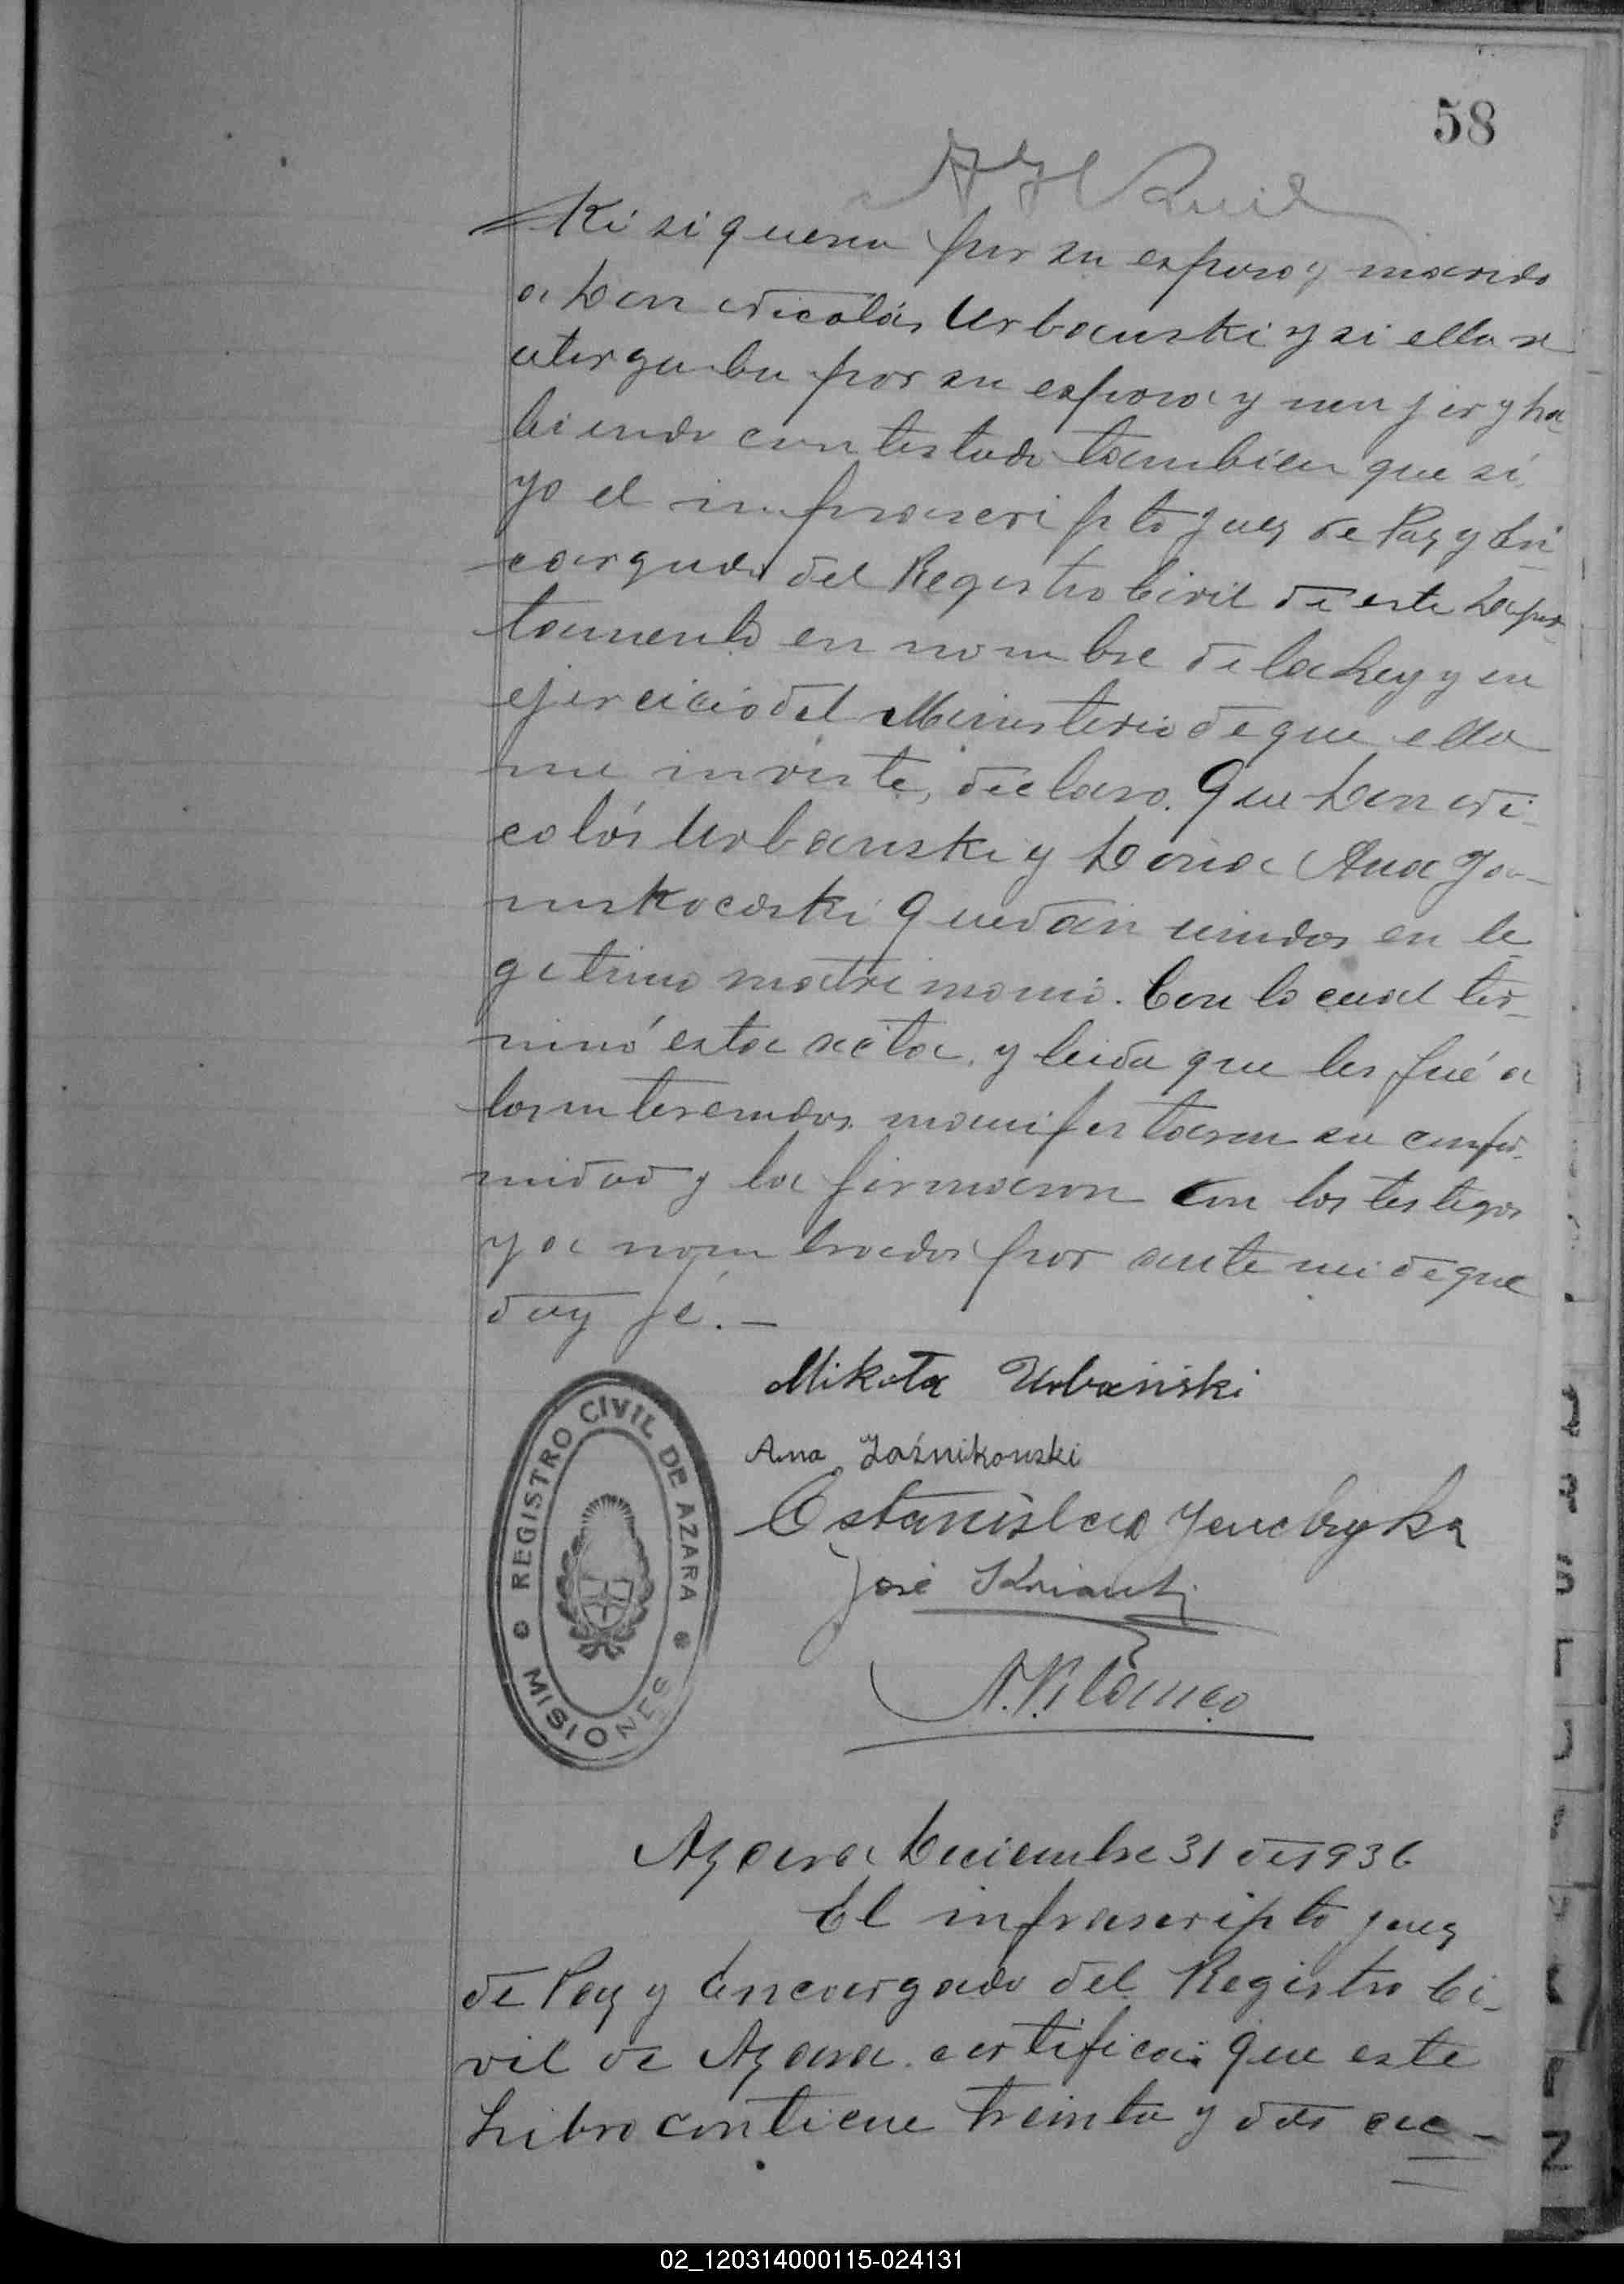 58
ki si queria por su esposo y marido
a Don Nicolás Urbanski y si ella se
otorgaba por su esposa y mujer y ha-
biendo contestado tambien que si,
yo el infrascripto Juez de Paz y En-
cargado del Registro Civil de este Depar-
tamento en nombre de la Ley y en
ejercicio del Ministerio de que ella
me inviste, declaro. Que Don Ni-
colás Urbanski y Doña Ana Ja-
quedan unidos en le-
gitimo matrimonio. Con lo cual ter-
minó esta acta, y leida que les fué a
los interesados manifestaron su confor-
midad y la firmaron con los testigos
ya nombrados por ante mi de que
doy fé. —
Mikołaj Urbański
Ana Jaźnikowski
Estanislao
José
REGISTRO CIVIL DE AZARA
MISIONES
Azara Diciembre 31 de 1936
El infrascripto Juez
de Paz y Encargado del Registro Ci-
vil de Azara certifica: que este
Libro contiene treinta y dos ac-
02_120314000115-024131